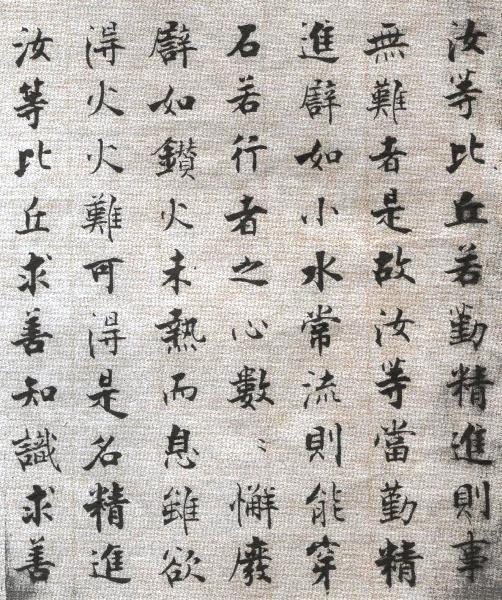 汝等比丘若勤精進則事
無難者是故汝等當勤精
進譬如小水常流則能穿
石若行者之心數〻懈廢
譬如鑚火未熱而息雖欲
得火火難可得是名精進
汝等比丘求善知識求善